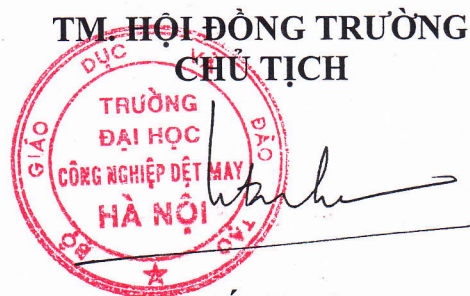 TM. HỘI ĐỒNG TRƯỜNG
CHỦ TỊCH
BỘ GIÁO DỤC VÀ ĐÀO TẠO
TRƯỜNG
ĐẠI HỌC
CÔNG NGHIỆP DỆT MAY
HÀ NỘI